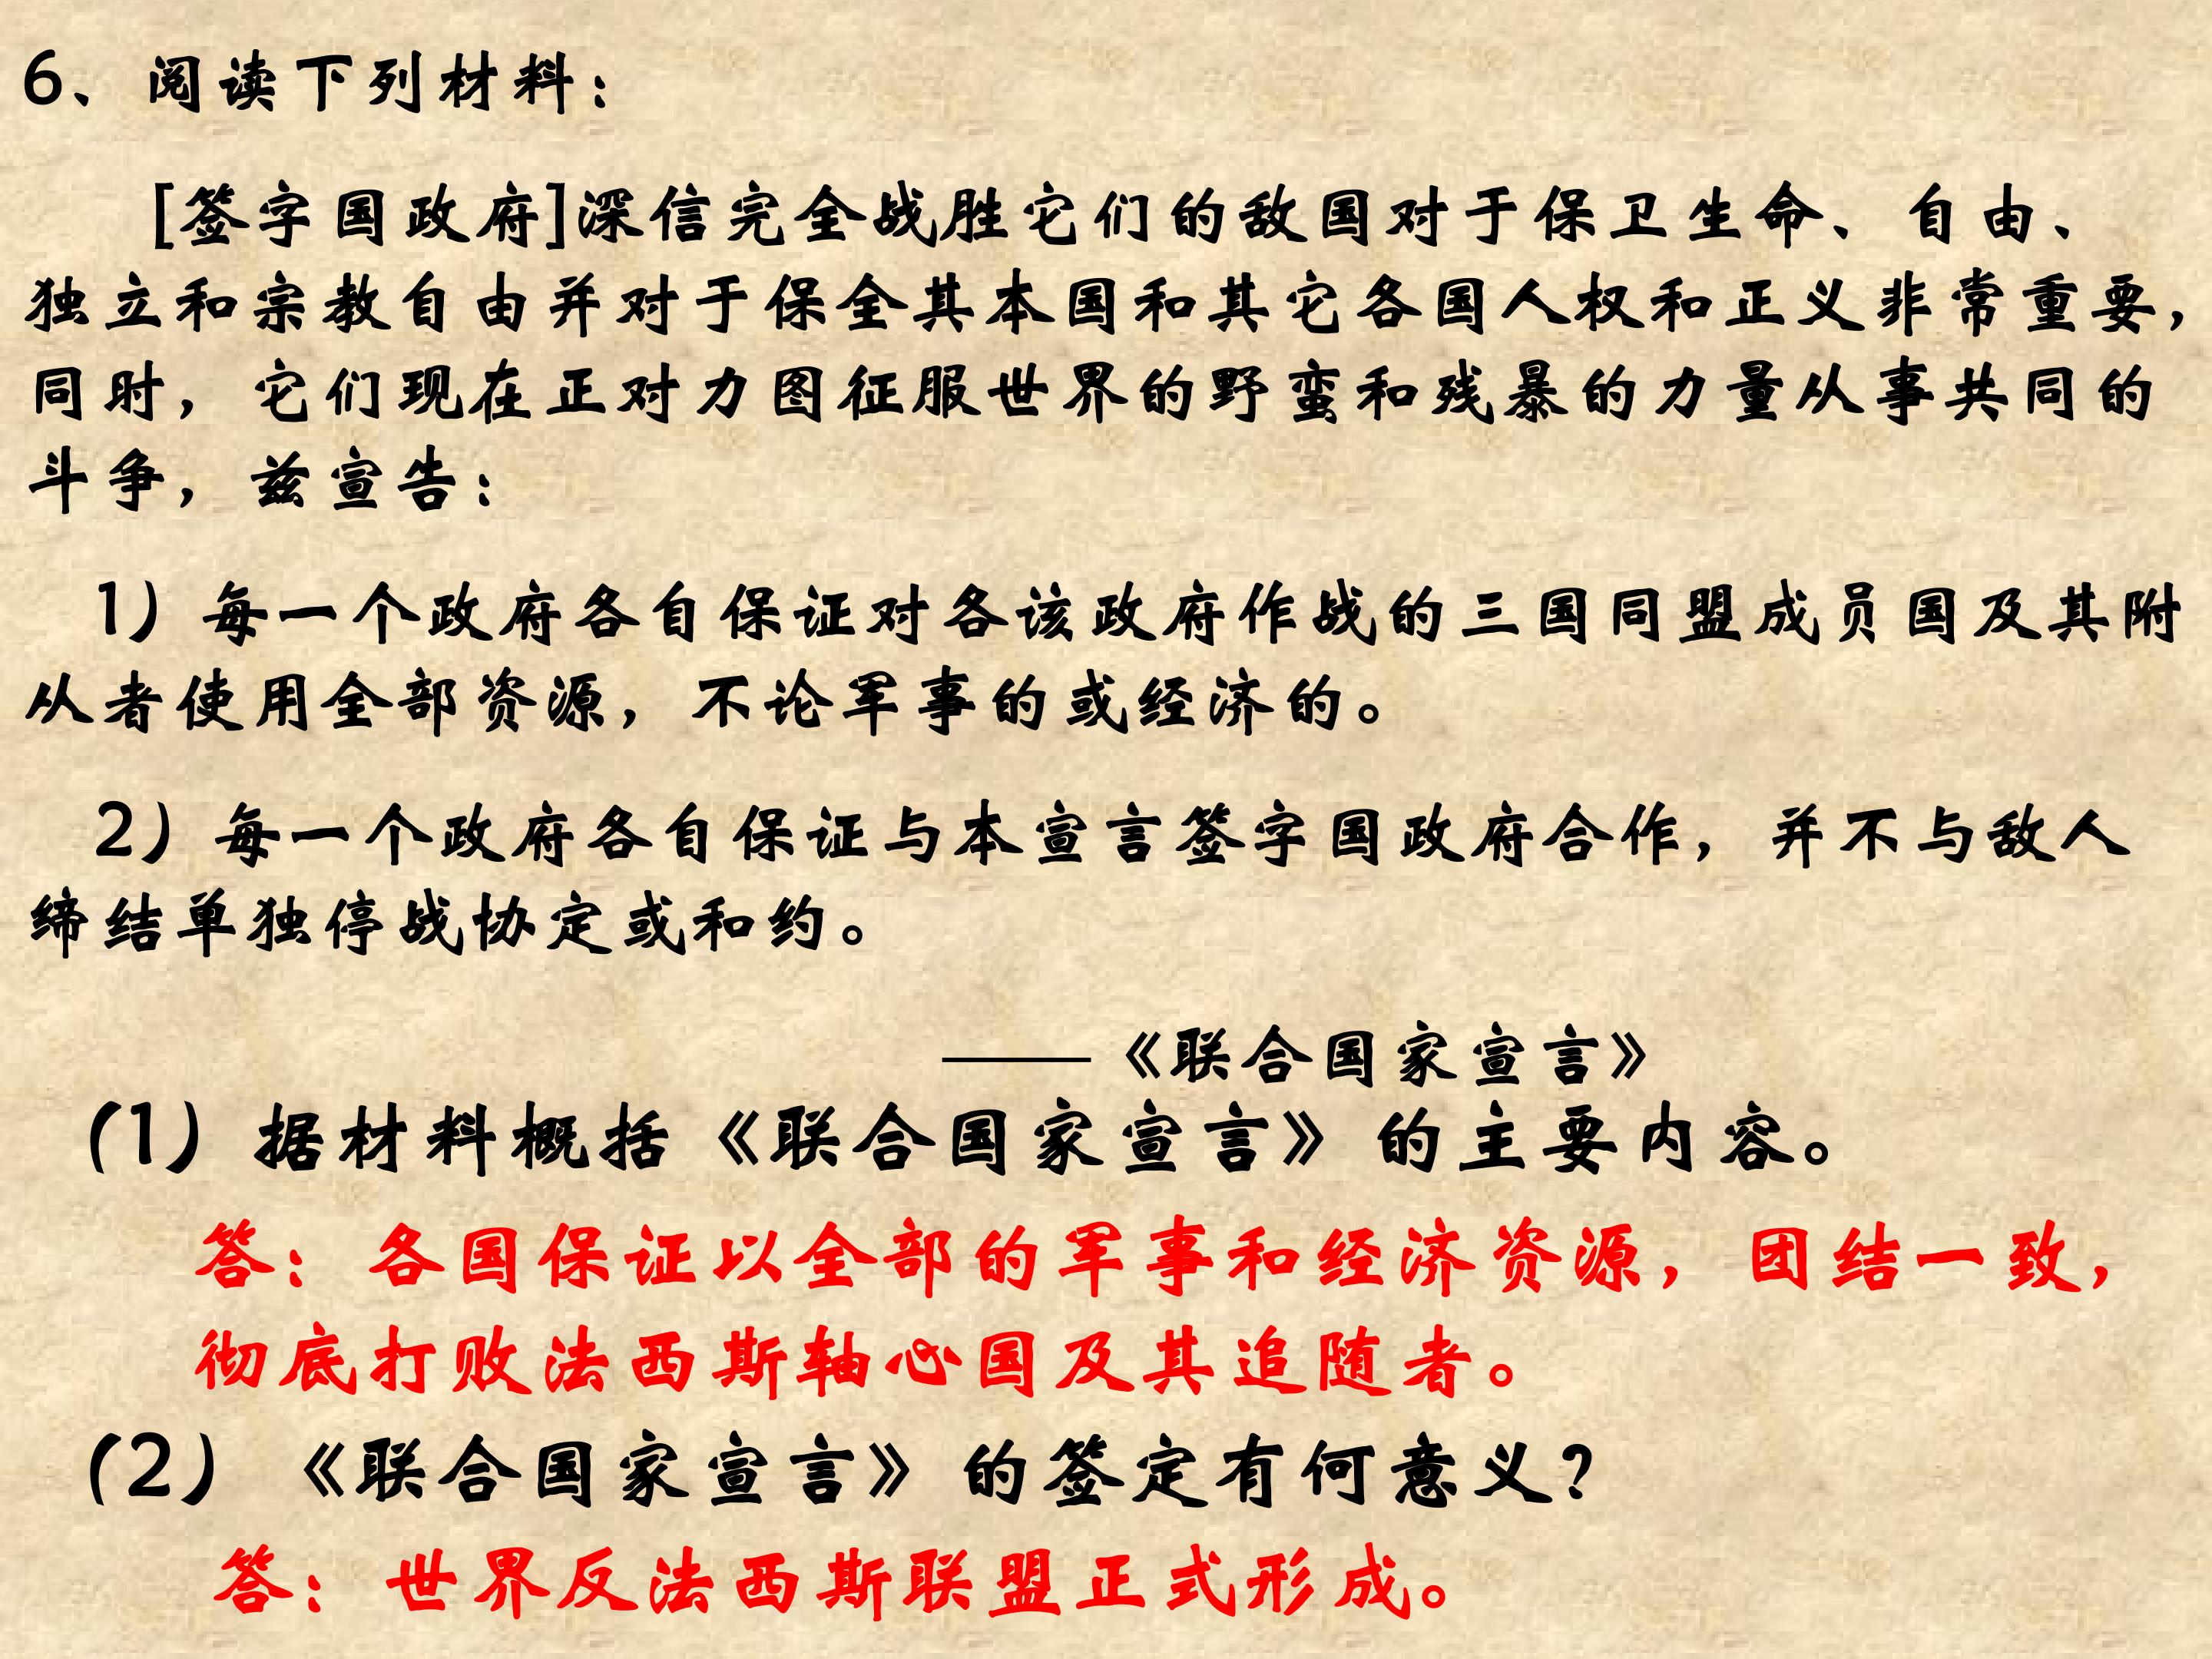 6、阅读下列材料：
[签字国政府]深信完全战胜它们的敌国对于保卫生命、自由、
独立和宗教自由并对于保全其本国和其它各国人权和正义非常重要，
同时，它们现在正对力图征服世界的野蛮和残暴的力量从事共同的
斗争，兹宣告：
1）每一个政府各自保证对各该政府作战的三国同盟成员国及其附
从者使用全部资源，不论军事的或经济的。
2）每一个政府各自保证与本宣言签字国政府合作，并不与敌人
缔结单独停战协定或和约。
——《联合国家宣言》
(1）据材料概括《联合国家宣言》的主要内容。
答：各国保证以全部的军事和经济资源，团结一致，
彻底打败法西斯轴心国及其追随者。
(2）《联合国家宣言》的签定有何意义？
答：世界反法西斯联盟正式形成。